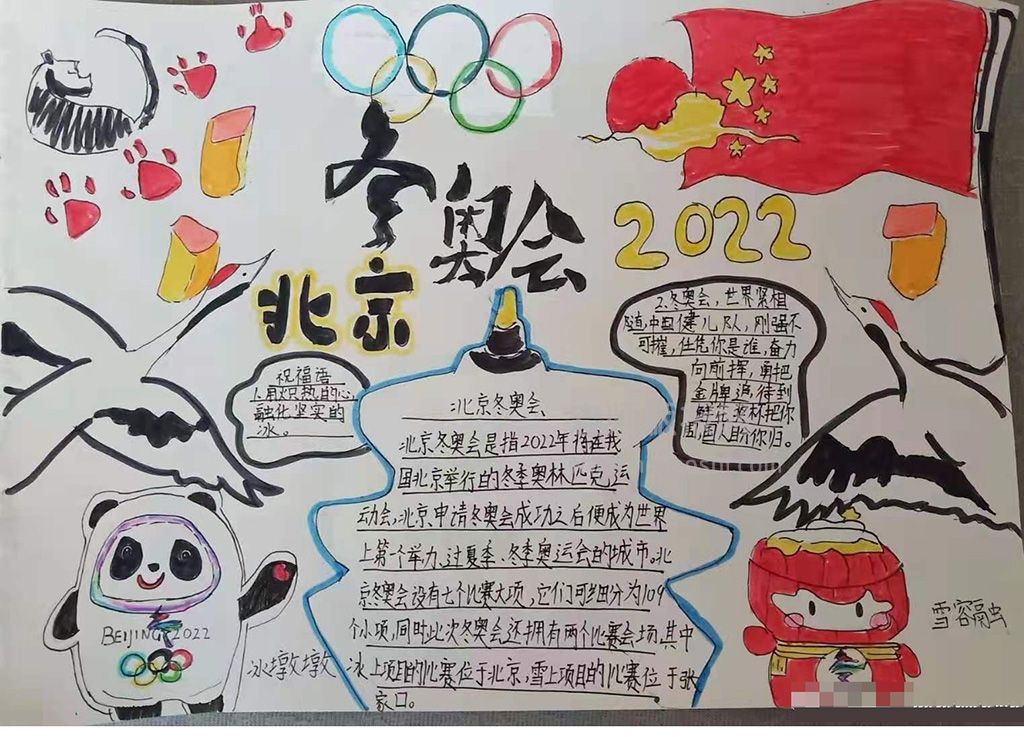 冬奥会
2022
北京
祝福语
1.用炽热的心
融化坚实的
冰。
2.冬奥会,世界紧相
随,中国健儿队,刚强不
可摧,任凭你是谁,奋力
向前挥,勇把
金牌追,待到
鲜花奖杯把你
围,国人盼你归。
北京冬奥会
北京冬奥会是指2022年将在我
国北京举行的冬季奥林匹克运
动会,北京申请冬奥会成功之后便成为世界
上第一个举办过夏季、冬季奥运会的城市。北
京冬奥会设有七个比赛大项,它们可细分为109
个小项,同时此次冬奥会还拥有两个比赛会场,其中
冰上项目的比赛位于北京,雪上项目的比赛位于张
家口。
BEIJING 2022
冰墩墩
雪容融